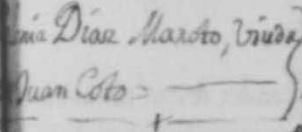 enia Diaz Maroto, Viuda
Juan Coto =